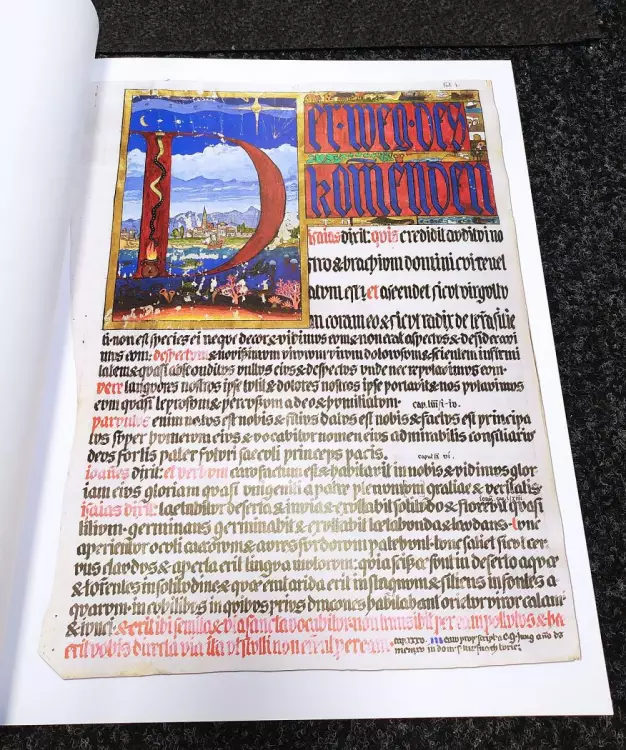 fol. i.
Der Weg des
Komenden
isaias dixit: quis credidit auditui no
stro & brachium domini cui revel
atum est? et ascendet sicut virgultu
m coram eo & sicut radix de terra sitie
ti. non est species ei neque decor & vidimus eum & non erat aspectus & desideravi
mus eum: despectum & novissimum virorum virum dolorum & scientem infirmi
tatem & quasi absconditus vultus eius & despectus unde nec reputavimus eum.
vere languores nostros ipse tulit & dolores nostros ipse portavit & nos putavimus
eum quasi leprosum & percussum a deo & humiliatum. cap. liii/i-iv.
parvulus enim natus est nobis & filius datus est nobis & factus est principa
tus super humerum eius & vocabitur nomen eius admirabilis consiliarius
deus fortis pater futuri saeculi princeps pacis. caput ix vi.
ioannes dixit: et verbum caro factum est & habitavit in nobis & vidimus glor
iam eius gloriam quasi unigeniti a patre plenum gratiae & veritatis.
isaias dixit: laetabitur deserta & invia & exultabit solitudo & florebit quasi
lilium. germinans germinabit & exultabit laetabunda & laudans. tunc
aperientur oculi caecorum & aures surdorum patebunt. tunc saliet sicut cer
vus claudus & aperta erit lingua mutorum: quia scissae sunt in deserto aquae
& torrentes in solitudine & quae erat arida erit in stagnum & sitiens in fontes a
quarum. in cubilibus in quibus prius dracones habitabant orietur viror calami
& iunci. & erit ibi semita & via sancta vocabitur. non transibit per eam pollutus & haec
erit vobis directa via ita ut stulti non errent per eam. cap. xxxv.